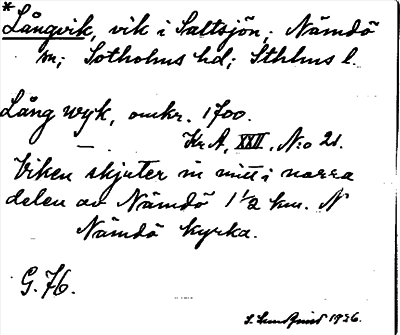 *Långvik, vik i Saltsjön; Nämdö
sn; Sotholms hd; Sthlms l.
Lång wyk, omkr. 1700.
Kr A, XXII, N:o 21.
Viken skjuter in mitt i norra
delen av Nämdö 1 1/2 km. N
Nämdö kyrka.
G. 76.
S. Lundqvist 1926.